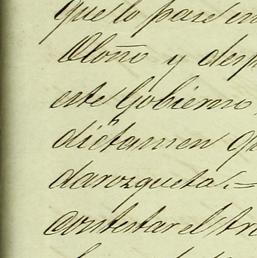 que lo pase en
Otoño y desp
este Gobierno,
dictamen que
darozqueta.=
contestar el tra